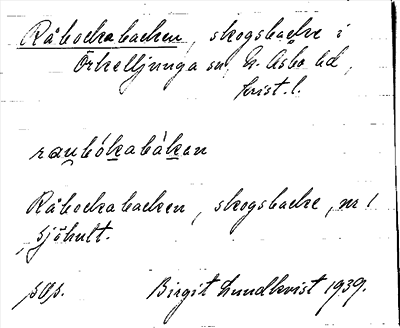 Råbockabacken, skogsbacke i
Örkelljunga sn, N. Åsbo hd,
Krist. l.
raubókabákan
Råbockabacken, skogsbacke, nr 1
Sjöhult.
Birgit Lundkvist 1939.